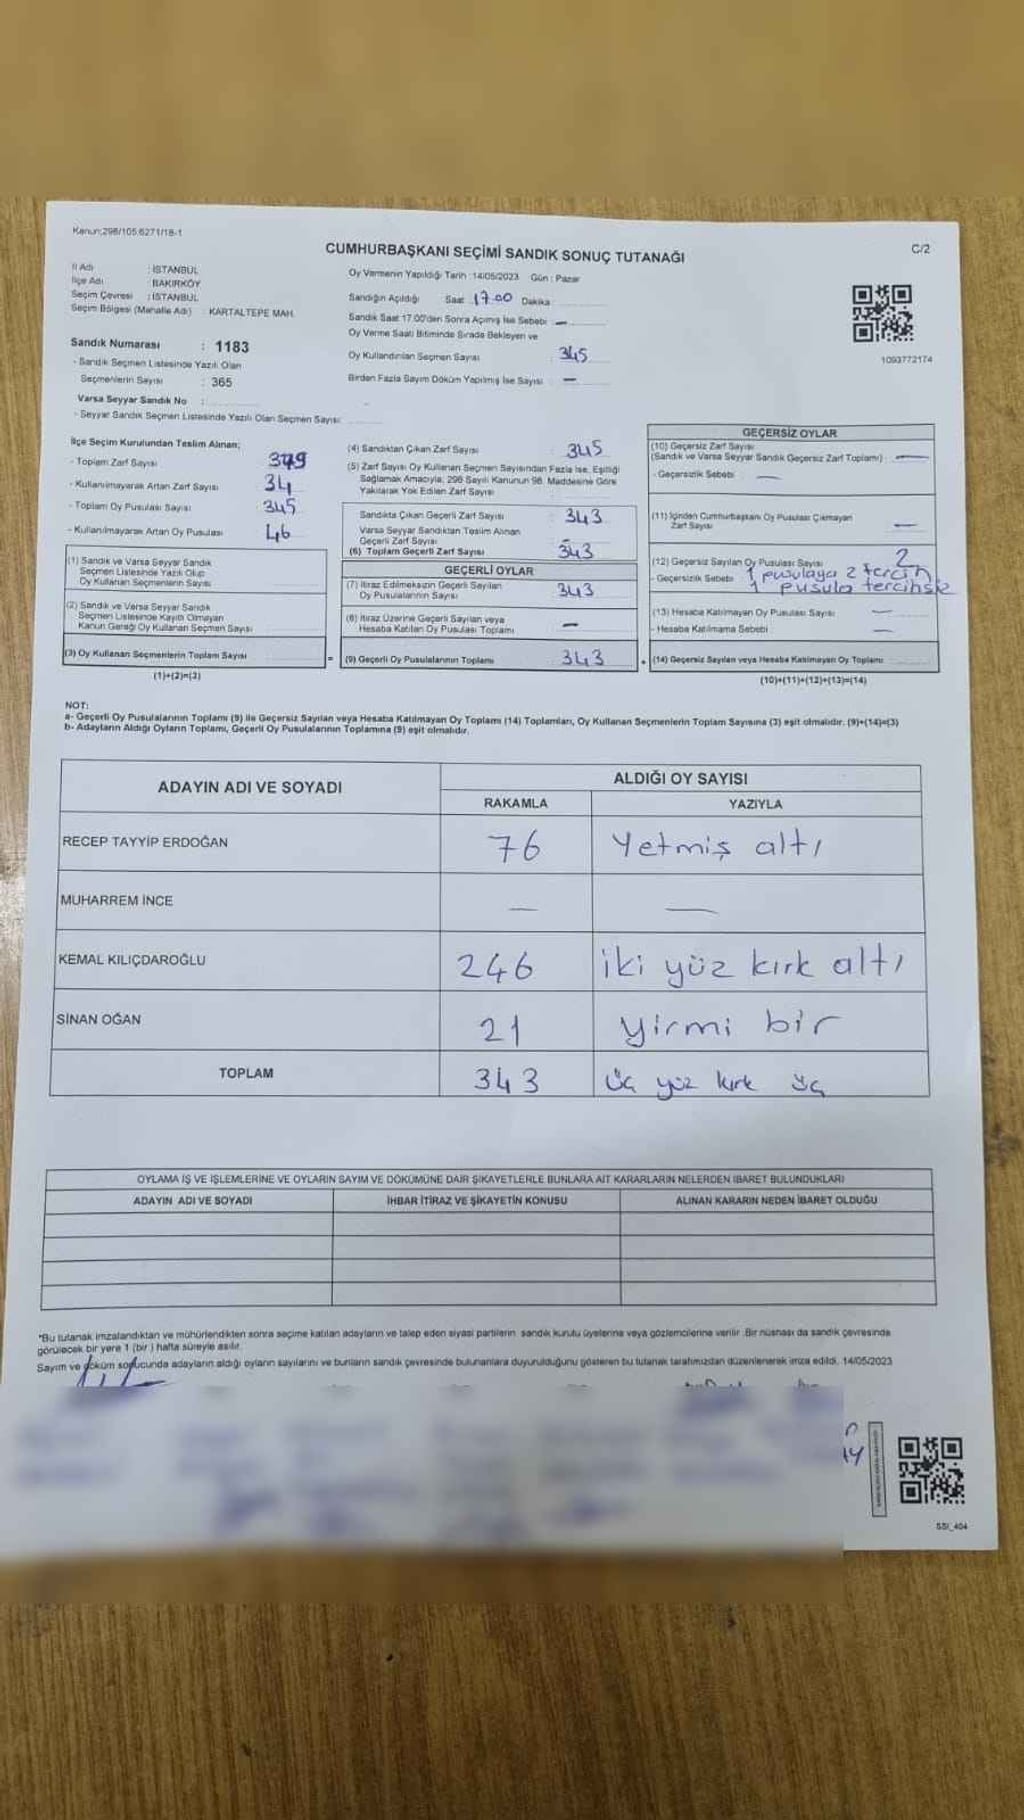 Kanun:298/105.6271/18-1
C/2
CUMHURBAŞKANI SEÇİMİ SANDIK SONUÇ TUTANAĞI
İl Adı : İSTANBUL
İlçe Adı : BAKIRKÖY
Seçim Çevresi : İSTANBUL
Seçim Bölgesi (Mahalle Adı) KARTALTEPE MAH.
Sandık Numarası : 1183
- Sandık Seçmen Listesinde Yazılı Olan
Seçmenlerin Sayısı : 365
Varsa Seyyar Sandık No :
- Seyyar Sandık Seçmen Listesinde Yazılı Olan Seçmen Sayısı:
Oy Vermenin Yapıldığı Tarih : 14/05/2023 Gün : Pazar
Sandığın Açıldığı Saat 17.00 Dakika
Sandık Saat 17.00'den Sonra Açımış İse Sebebi : —
Oy Verme Saati Bitiminde Sırada Bekleyen ve
Oy Kullandırılan Seçmen Sayısı : 345
Birden Fazla Sayım Döküm Yapılmış İse Sayısı : —
1093772174
İlçe Seçim Kurulundan Teslim Alınan;
- Toplam Zarf Sayısı
- Kullanılmayarak Artan Zarf Sayısı 34
- Toplam Oy Pusulası Sayısı 345
- Kullanılmayarak Artan Oy Pusulası 46
(1) Sandık ve Varsa Seyyar Sandık
Seçmen Listesinde Yazılı Olup
Oy Kullanan Seçmenlerin Sayısı
(2) Sandık ve Varsa Seyyar Sandık
Seçmen Listesinde Kayıtlı Olmayan
Kanun Gereği Oy Kullanan Seçmen Sayısı
(3) Oy Kullanan Seçmenlerin Toplam Sayısı
(1)+(2)=(3)
(4) Sandıktan Çıkan Zarf Sayısı : 345
(5) Zarf Sayısı Oy Kullanan Seçmen Sayısından Fazla İse, Eşitliği
Sağlamak Amacıyla; 298 Sayılı Kanunun 98. Maddesine Göre
Yakılarak Yok Edilen Zarf Sayısı
Sandıkta Çıkan Geçerli Zarf Sayısı : 343
Varsa Seyyar Sandıktan Teslim Alınan
Geçerli Zarf Sayısı
(6) Toplam Geçerli Zarf Sayısı : 343
GEÇERLİ OYLAR
(7) İtiraz Edilmeksizin Geçerli Sayılan
Oy Pusulalarının Sayısı : 343
(8) İtiraz Üzerine Geçerli Sayılan veya
Hesaba Katılan Oy Pusulası Toplamı : —
= (9) Geçerli Oy Pusulalarının Toplamı : 343
GEÇERSİZ OYLAR
(10) Geçersiz Zarf Sayısı
(Sandık ve Varsa Seyyar Sandık Geçersiz Zarf Toplamı) —
- Geçersizlik Sebebi : —
(11) İçinden Cumhurbaşkanı Oy Pusulası Çıkmayan
Zarf Sayısı : —
(12) Geçersiz Sayılan Oy Pusulası Sayısı 2
- Geçersizlik Sebebi 1 pusulaya 2 tercih
1 pusula tercihsiz
(13) Hesaba Katılmayan Oy Pusulası Sayısı : —
- Hesaba Katılmama Sebebi : —
+ (14) Geçersiz Sayılan veya Hesaba Katılmayan Oy Toplamı :
(10)+(11)+(12)+(13)=(14)
NOT:
a- Geçerli Oy Pusulalarının Toplamı (9) ile Geçersiz Sayılan veya Hesaba Katılmayan Oy Toplamı (14) Toplamları, Oy Kullanan Seçmenlerin Toplam Sayısına (3) eşit olmalıdır. (9)+(14)=(3)
b- Adayların Aldığı Oyların Toplamı, Geçerli Oy Pusulalarının Toplamına (9) eşit olmalıdır.
ADAYIN ADI VE SOYADI ALDIĞI OY SAYISI
RAKAMLA YAZIYLA
RECEP TAYYİP ERDOĞAN 76 Yetmiş altı
MUHARREM İNCE — —
KEMAL KILIÇDAROĞLU 246 iki yüz kırk altı
SİNAN OĞAN 21 yirmi bir
TOPLAM 343 üç yüz kırk üç
OYLAMA İŞ VE İŞLEMLERİNE VE OYLARIN SAYIM VE DÖKÜMÜNE DAİR ŞİKAYETLERLE BUNLARA AİT KARARLARIN NELERDEN İBARET BULUNDUKLARI
ADAYIN ADI VE SOYADI İHBAR İTİRAZ VE ŞİKAYETİN KONUSU ALINAN KARARIN NEDEN İBARET OLDUĞU
*Bu tutanak imzalandıktan ve mühürlendikten sonra seçime katılan adayların ve talep eden siyasi partilerin sandık kurulu üyelerine veya gözlemcilerine verilir. Bir nüshası da sandık çevresinde
görülecek bir yere 1 (bir ) hafta süreyle asılır.
Sayım ve döküm sonucunda adayların aldığı oyların sayılarını ve bunların sandık çevresinde bulunanlara duyurulduğunu gösteren bu tutanak tarafımızdan düzenlenerek imza edildi. 14/05/2023
SSI_404